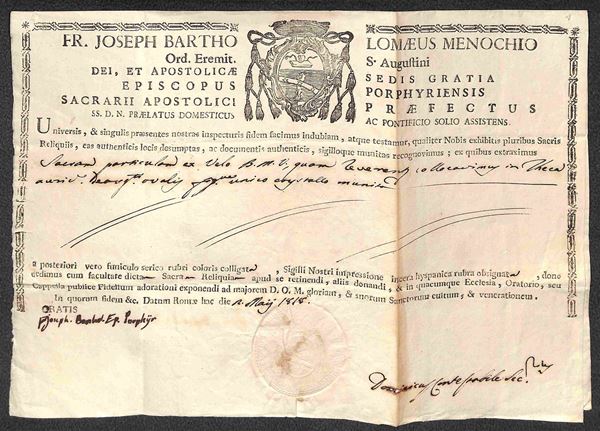 FR. JOSEPH BARTHO LOMÆUS MENOCHIO
Ord. Eremit. S. Augustini
DEI, ET APOSTOLICÆ SEDIS GRATIA
EPISCOPUS PORPHYRIENSIS
SACRARII APOSTOLICI PRÆFECTUS
SS. D. N. PRÆLATUS DOMESTICUS AC PONTIFICIO SOLIO ASSISTENS.
Universis, & singulis præsentes nostras inspecturis fidem facimus indubiam, atque testamur, qualiter Nobis exhibitis pluribus Sacris
Reliquiis, eas authenticis locis desumptas, ac documentis authenticis, sigilloque munitas recognovimus; ex quibus extraximus
Sacram particulam ex Velo B.M.V. quam reverenter collocavimus in Theca
ovalis unico crystallo munita
a posteriori vero funiculo serico rubri coloris colligata, Sigilli Nostri impressione in cera hyspanica rubra obsignata, dono
dedimus cum facultate dictam Sacram Reliquiam apud se retinendi, aliis donandi, & in quacumque Ecclesia, Oratorio, seu
Cappella publicæ Fidelium adorationi exponendi ad majorem D. O. M. gloriam, & suorum Sanctorum cultum, & venerationem.
In quorum fidem &c. Datum Romæ hac die Maij 1818.
GRATIS
Joseph. Barthol. Ep. Porphyr
Dominicus Contestabile Sec.